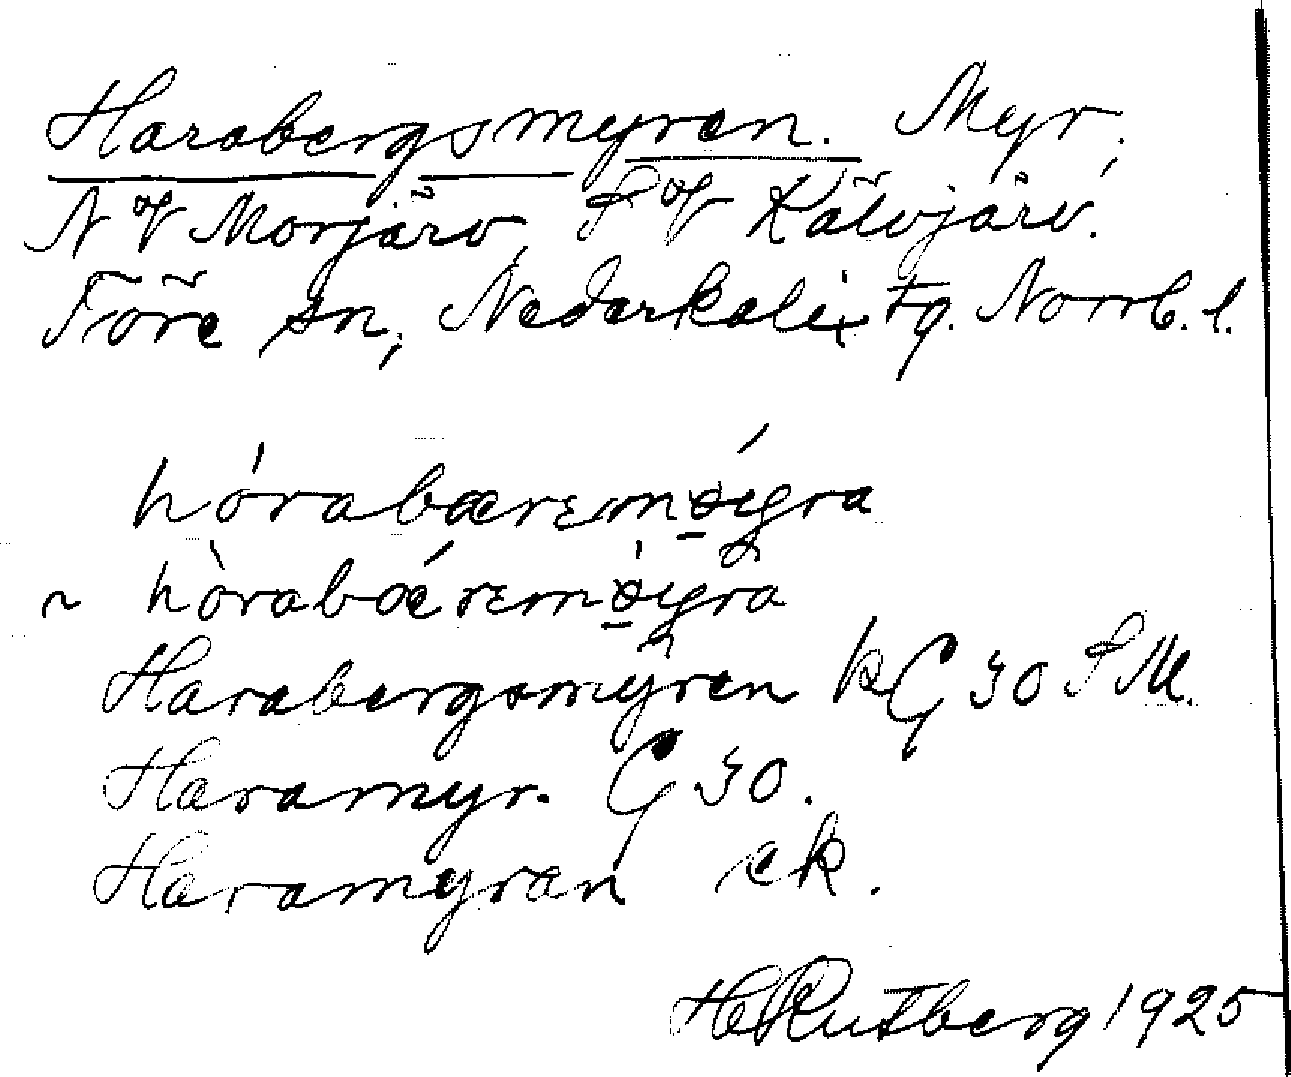 Harabergsmyren. Myr,
NV Morjärv, SV Kälvjärv.
Töre sn, Nederkalix tg. Norrb. l.
hórabæremøygra
~ hòrabǽremøygra
Harabergsmyren kG 30 SM.
Haramyr. G 30.
Haramyran ek.
H Rutberg 1925